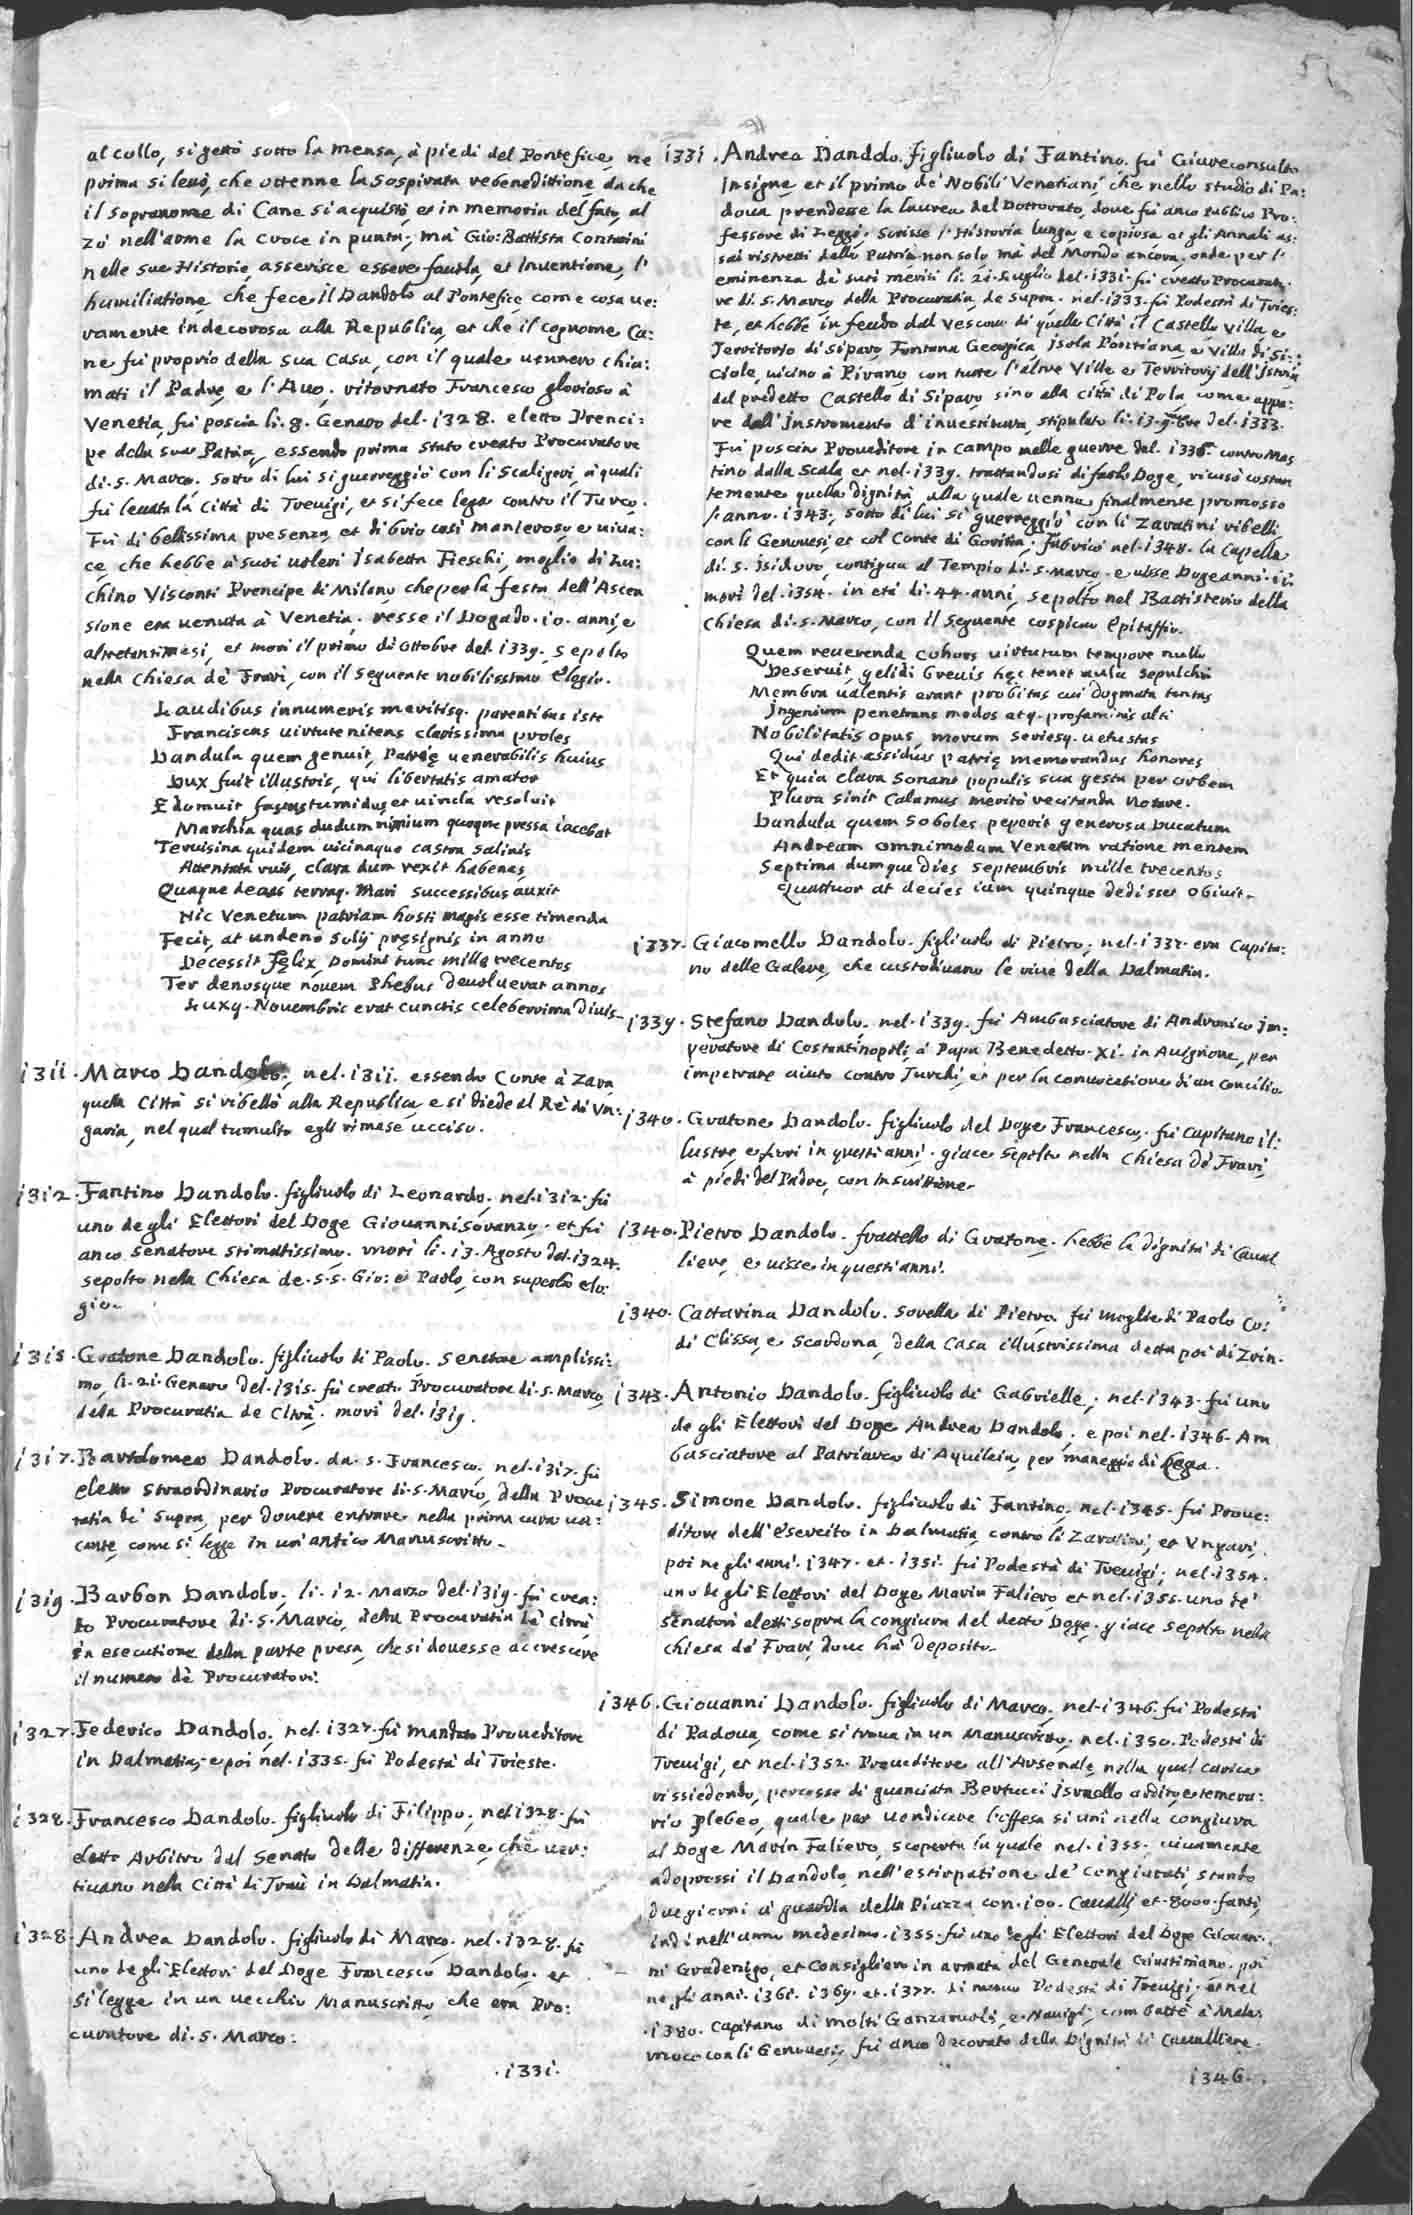 al collo, si gettò sotto la mensa, à piedi del Pontefice, ne
prima si levò, che ottenne la sospirata rebenedittione, da che
il sopranome di Cane si acquistò et in memoria del fato, al
zò nell'arme la Croce in punta; mà Gio: Battista Contarini
nelle sue Historie, asserisce essere fauola, et Inuentione, l'
humiliatione, che fece il Dandolo al Pontefice, come cosa ue:
ramente indecorosa alla Republica, et che il cognome Ca:
ne fù proprio della sua Casa, con il quale uennero chia:
mati il Padre, e l'Auo, ritornato Francesco glorioso à
Venetia, fù poscia li. 8. Genaro del. 1328. eletto Prenci:
pe della sua Patria, essendo prima stato creato Procuratore
di. S. Marco. sotto di lui si guerreggiò con li Scaligeri, à quali
fù leuata la Città di Treuigi, et si fece lega contro il Turco.
Fù di bellissima presenza, et di brio così manieroso, e uiua:
ce, che hebbe à suoi uoleri Isabetta Fieschi, moglie di Lu:
chino Visconti Prencipe di Milano che per la festa dell'Ascen
sione era uenuta à Venetia. resse il Dogado. 10. anni, e
altretanti mesi, et morì il primo di Ottobre del. 1339. sepolto
nella Chiesa de Frari, con il seguente nobilissimo elogio.
Laudibus innumeris meritisq. parentibus iste
Franciscus uirtute nitens clarissima proles
Dandula quem genuit, Patrię uenerabilis huius
Dux fuit illustris, qui libertatis amator
Edomuit fastus tumidus, et uincla resoluit
Marchia quas dudum nimium quoque pressa iacebat
Teruisina quidem uicinaque castra salinis
Attentata ruit, clara dum rexit habenas,
Quaque decus terraq. Mari successibus auxit
Hic Venetum patriam hosti magis esse timenda
Fecit, at undeno solij pręsignis in anno
Decessit fęlix, Domini tunc mille trecentos
Ter denosque nouem Phebus deuoluerat annos
Luxq. Nouembris erat cunctis celeberrima Diuis
1311. Marco Dandolo, nel. 1311. essendo Conte à Zara
quella Città si ribellò alla Republica, e si diede al Rè di Vn:
garia, nel qual tumulto egli rimase ucciso.
1312. Fantino Dandolo. figliuolo di Leonardo, nel. 1312. fù
uno de gli Elettori del Doge Giouanni Soranzo. et fù
anco Senatore stimatissimo. morì li. 13. Agosto del. 1324.
sepolto nella Chiesa de. S.S. Gio: e Paolo, con superbo elo:
gio.
1315. Gratone Dandolo. figliuolo di Paolo. Senatore amplissi:
mo, li. 21. Genaro del. 1315. fù creato Procuratore di. S. Marco,
della Procuratia de Citrà. morì del. 1319.
1317. Bartolomeo Dandolo. da. S. Francesco, nel. 1317. fù
eletto straordinario Procuratore di. S. Marco, della Procu
ratia de Supra, per douere entrare nella prima cura ua:
cante, come si legge in un'antico Manuscritto.
1319. Barbon Dandolo, li. 12. Marzo del. 1319. fù crea:
to Procuratore di. S. Marco, della Procuratia de Citrà
in esecutione della parte presa, che si douesse accrescere
il numero dè Procuratori.
1327. Federico Dandolo. nel. 1327. fù mandato Proueditore
in Dalmatia, e poi nel. 1335. fù Podestà di Trieste.
1328. Francesco Dandolo. figliuolo di Filippo, nel 1328. fù
eletto Arbitro dal Senato delle differenze, che uer:
tiuano nella Città di Traù in Dalmatia.
1328. Andrea Dandolo. figliuolo di Marco. nel. 1328. fù
uno de gli Elettori del Doge Francesco Dandolo. et
si legge in un uecchio Manuscritto, che era Pro:
curatore di. S. Marco.
.1331.
1331. Andrea Dandolo. figliuolo di Fantino. fù Giureconsulto
Insigne, et il primo de' Nobili Venetiani, che nello studio di Pa:
doua prendesse la laurea del Dottorato, doue fù anco publico Pro:
fessore di Leggi. Scrisse l'Historia lunga, e copiosa et gli Annali as:
sai ristretti della Patria non solo, mà del Mondo ancora. onde per l'
eminenza de suoi meriti li. 21. Luglio del. 1331. fù creato Procurato:
re di. S. Marco, della Procuratia, de supra. nel. 1333. fù Podestà di Tries:
te, et hebbe in feudo dal Vescouo di quella Città il Castello, Villa, e
Territorio di Siparo, Fontana Georgica, Isola Pontiana, e Villa di Si:
ciole, uicino à Pirano, con tutte l'altre Ville, e Territorij dell'Istria
dal predetto Castello di Siparo, sino alla città di Pola, come appa:
re dall'Instromento d'inuestitura, stipulato li. 13. 9.bre del. 1333.
Fù poscia Proueditore in campo nelle guerre del. 1336. contro Mas
tino dalla Scala, et nel. 1339. trattandosi di farlo Doge, ricusò costan
temente quella dignità, alla quale uenne finalmente promosso
l'anno. 1343; sotto di lui si guerreggiò con li Zaratini ribelli
con li Genouesi, et col Conte di Goritia; fabricò nel. 1348. la Capella
di. S. Isidoro, contigua al Tempio di. S. Marco. e uisse Doge anni. 11.
morì del. 1354. in età di. 44. anni, sepolto nel Battisterio della
Chiesa di. S. Marco, con il seguente cospicuo Epitaffio.
Quem reuerenda cohors uirtutum tempore nullo
Deseruit, gelidi breuis hęc tenet aula sepulchri
Membra ualentis erant probitas cui dogmata tantas
Ingenium penetrans modos atq. profaminis alti
Nobilitatis opus, morum seriesq. uetustas
Qui dedit assiduos patrię memorandus honores
Et quia clara sonant populis sua gesta per orbem
Plura sinit Calamus meritò recitanda notare.
Dandula quem soboles peperit generosa Ducatum
Andream omnimodam Venetum ratione mentem
Septima dumque dies Septembris mille trecentos
Quattuor at decies iam quinque dedisset obiuit.
1337. Giacomello Dandolo. figliuolo di Pietro; nel. 1337. era Capita:
no delle Galere, che custodiuano le riue della Dalmatia.
1339. Stefano Dandolo. nel. 1339. fù Ambasciatore di Andronico Im:
peratore di Costantinopoli, à Papa Benedetto. XI. in Auignone, per
impetrare aiuto contro Turchi, et per la conuocatione di un Concilio.
1340. Gratone Dandolo. figliuolo del Doge Francesco, fù Capitano il:
lustre, e fiorì in questi anni. giace sepolto nella Chiesa de' Frari,
à piedi del Padre, con Inscrittione.
1340. Pietro Dandolo. fratello di Gratone. hebbe la dignità di Caual
liere, e uisse in questi anni.
1340. Cattarina Dandolo. sorella di Pietro. fù moglie di Paolo Co:
di Clissa, e Scardona, della Casa illustrissima detta poi di Zrin.
1343. Antonio Dandolo. figliuolo di Gabrielle; nel. 1343. fù uno
de gli Elettori del Doge Andrea Dandolo; e poi nel. 1346. Am
basciatore al Patriarca di Aquileia, per maneggio di lega.
1345. Simone Dandolo. figliuolo di Fantino, nel. 1345. fù Proue:
ditore dell'esercito in Dalmatia, contro li Zaratini, et Vngari,
poi ne gli anni. 1347. et. 1351. fù Podestà di Treuigi; nel. 1354.
uno de gli Elettori del Doge Marin Faliero, et nel. 1355. uno de'
Senatori eletti sopra la congiura del detto Doge. giace sepolto nella
chiesa de' Frari, doue hà deposito.
1346. Giouanni Dandolo. figliuolo di Marco, nel. 1346. fù Podestà
di Padoua, come si troua in un Manuscritto. nel. 1350. Podestà di
Treuigi, et nel. 1352. Proueditore all'Arsenale, nella qual carica
rissiedendo, percosse di guanciata Bertucci Isruello ardito, e temera:
rio Plebeo, quale per uendicare l'offesa si unì nella congiura
al Doge Marin Faliero, scoperta la quale nel. 1355. uiuamente
adoprossi il Dandolo, nell'estirpatione de' congiurati, stando
due giorni à guardia della Piazza con. 100. Caualli, et. 8000. fanti,
indi nell'anno medesimo. 1355. fù uno de gli Elettori del Doge Giouan:
ni Gradenigo, et Consigliero in armata del Generale Giustiniano. poi
ne gli anni. 1361. 1369. et. 1377. di nuouo Podestà di Treuigi, et nel
.1380. Capitano di molti Ganzaruoli, e Nauigli, combattè à Mala:
mocco con li Genouesi, fù anco decorato della Dignità di Caualliere.
1346.